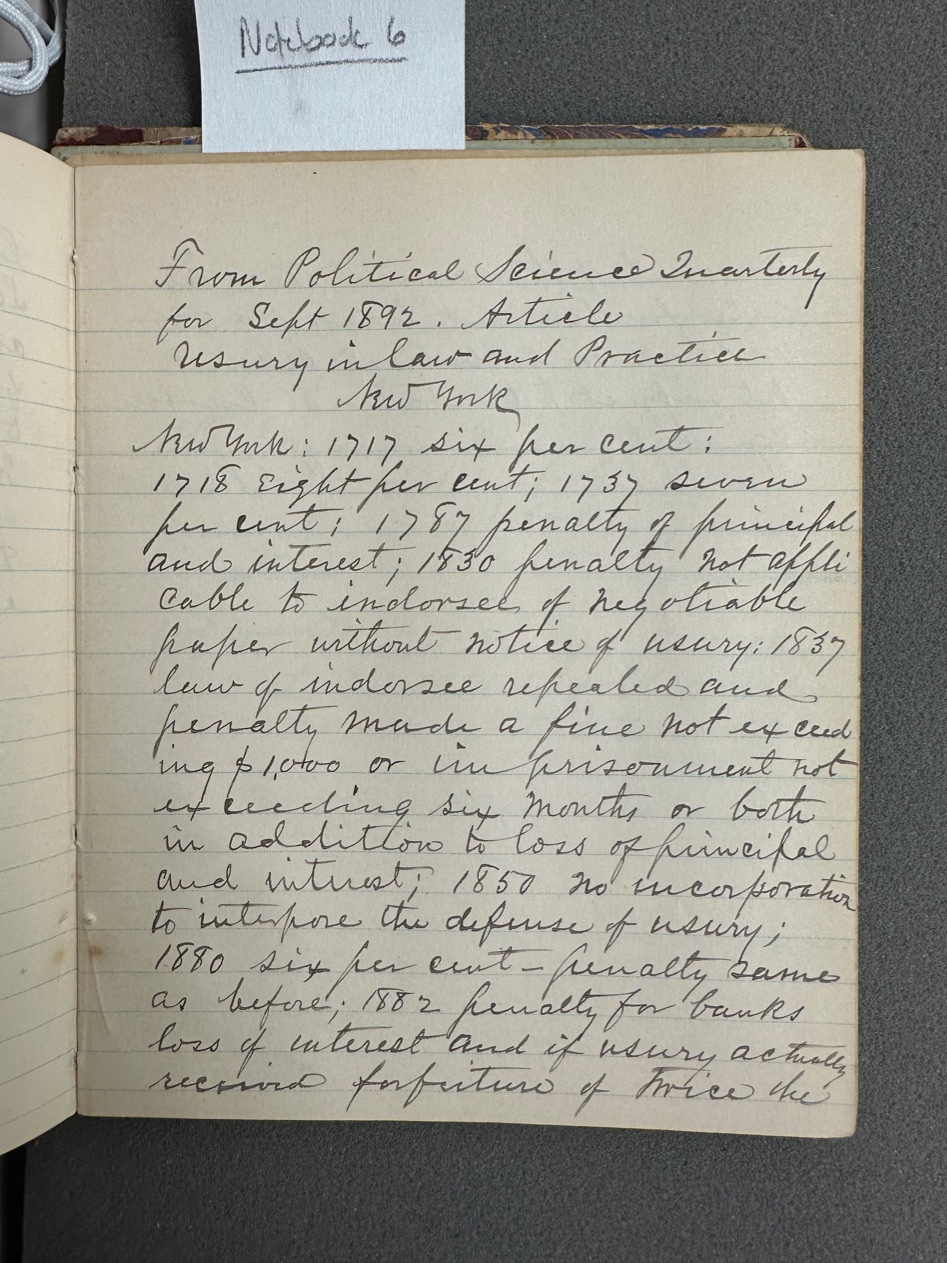 Notebook 6
From Political Science Quarterly
for Sept 1892. Article
Usury in law and Practice
New York
New York: 1717 six per cent:
1718 Eight per cent; 1737 seven
per cent; 1787 penalty of principal
and interest; 1830 penalty not appli
cable to indorsee of negotiable
paper without notice of usury: 1837
law of indorsee repealed and
penalty made a fine not exceed
ing $1,000 or imprisonment not
exceeding six months or both
in addition to loss of principal
and interest; 1850 no incorporation
to interpose the defense of usury;
1880 six per cent - penalty same
as before; 1882 penalty for banks
loss of interest and if usury actually
received forfeiture of twice the